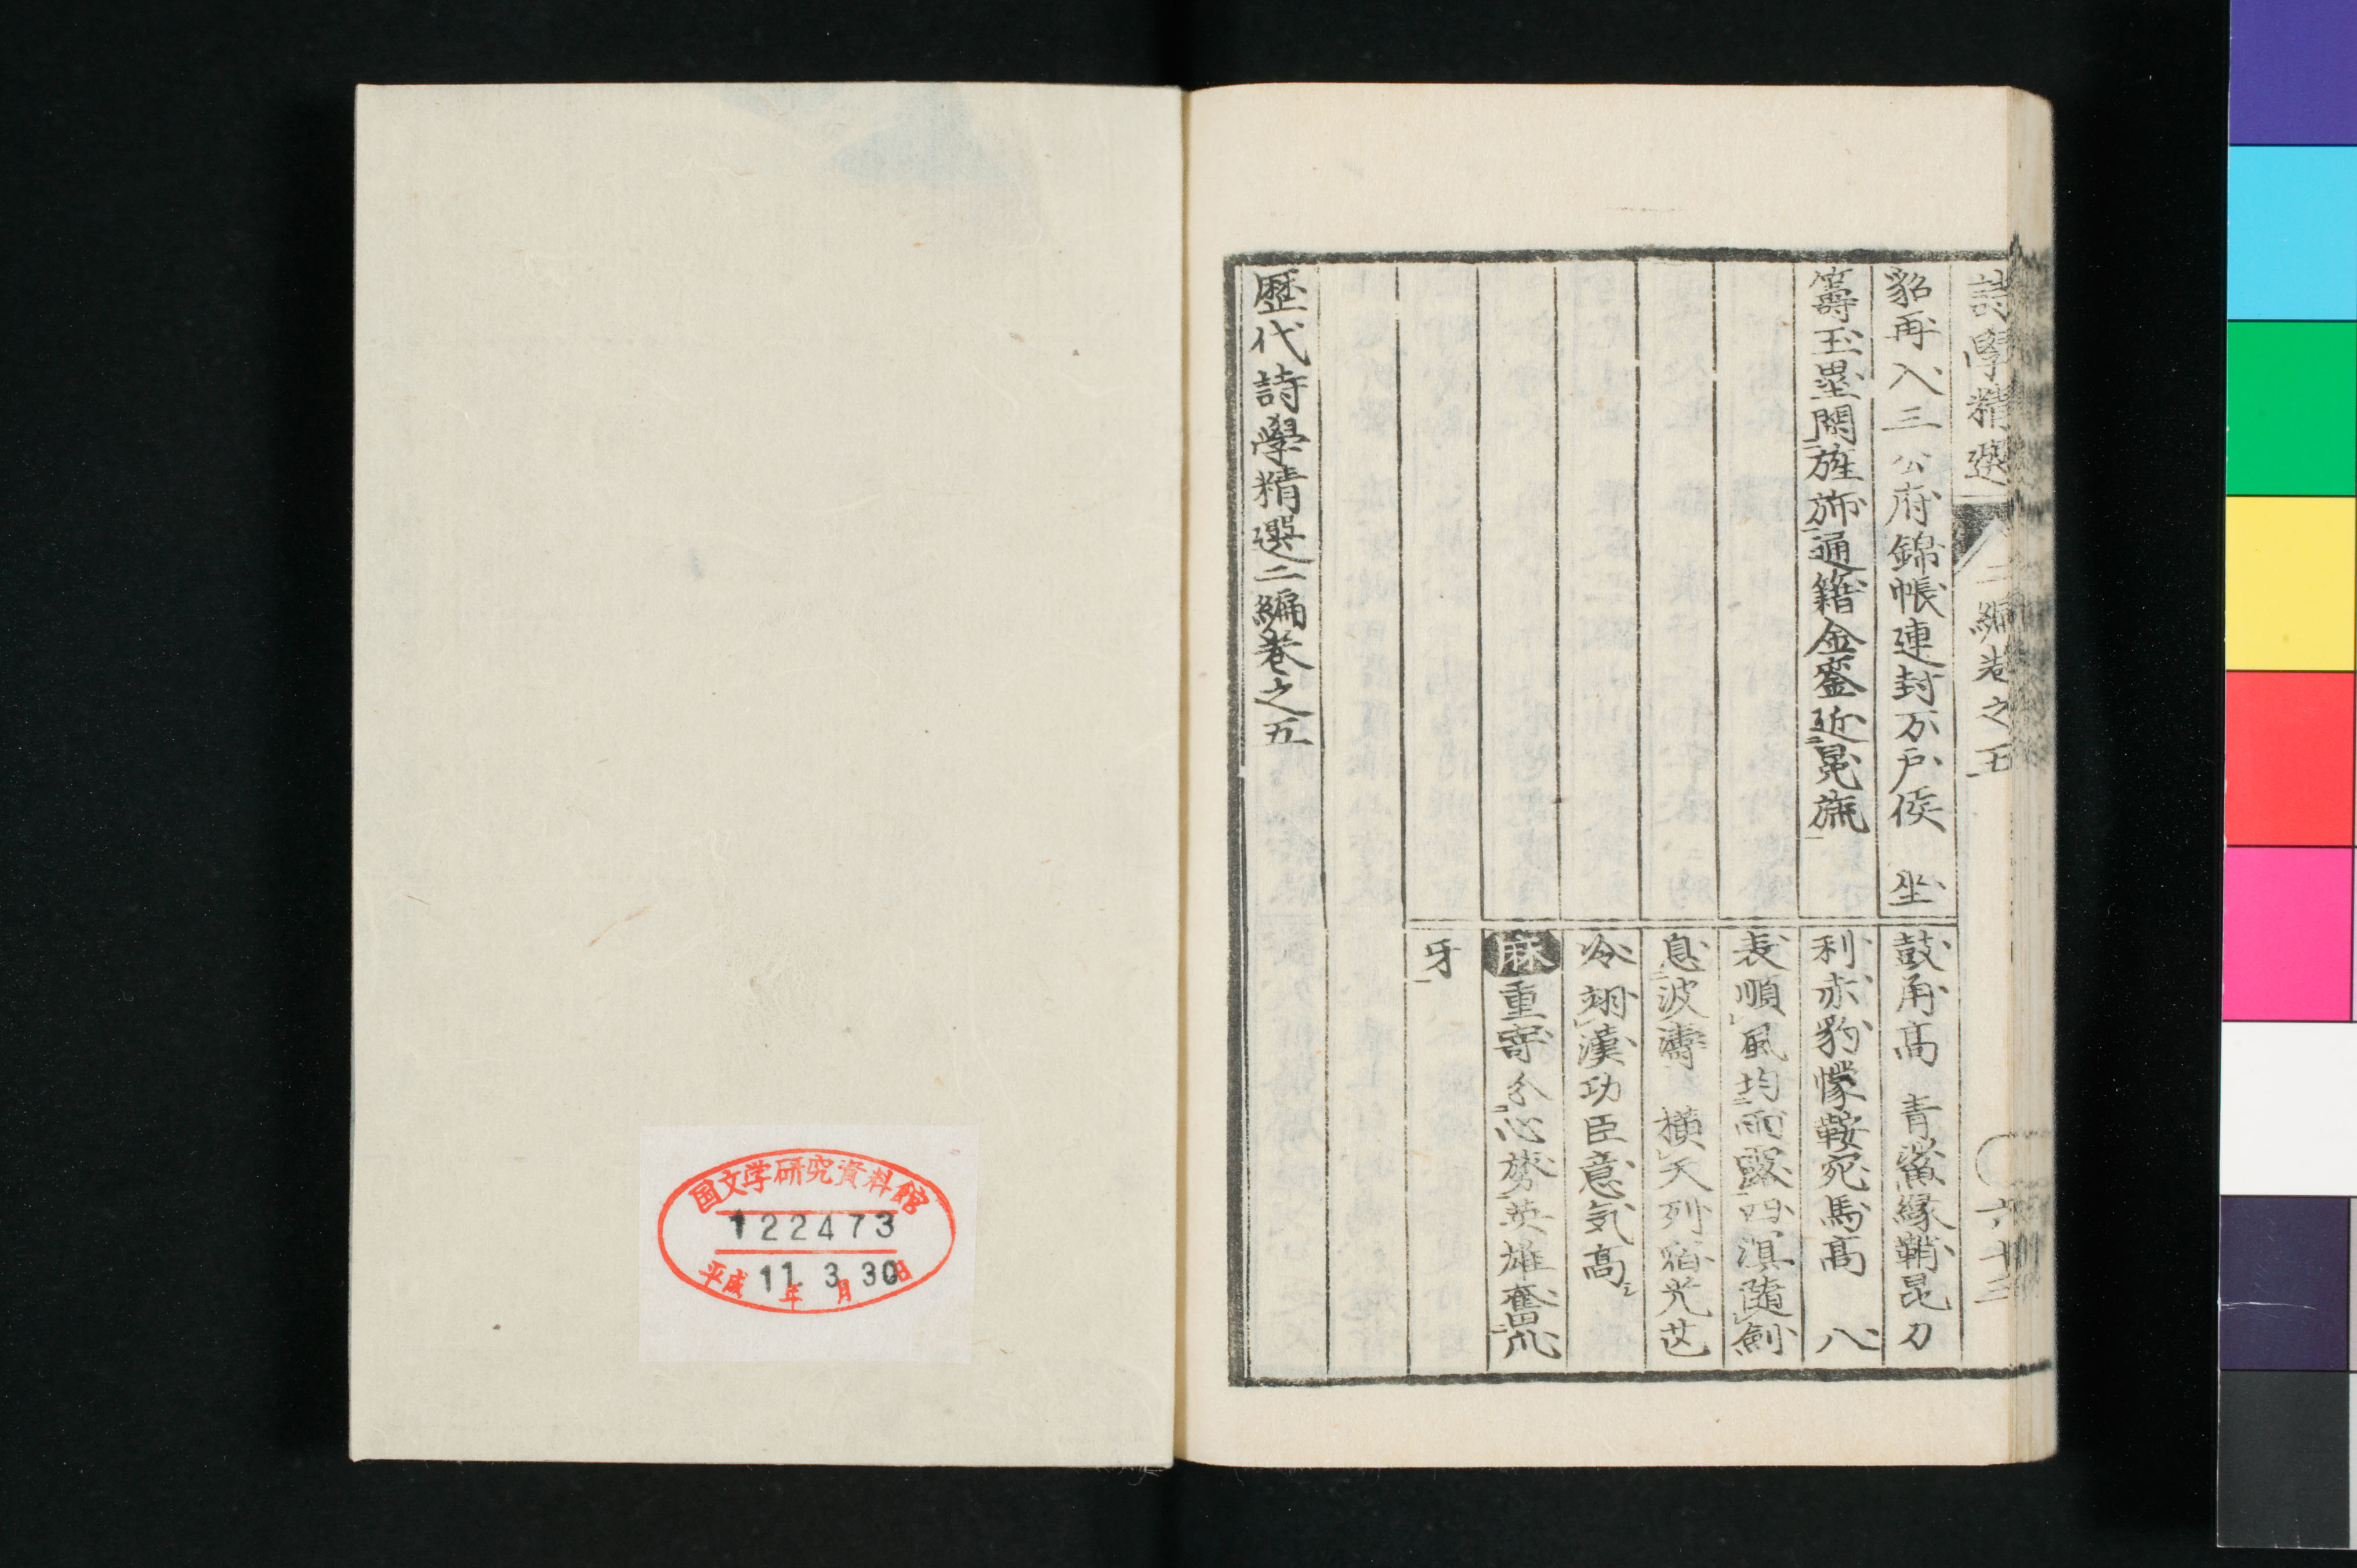 詩學精選 二編卷之五 六十三
貂再入三公府錦帳連封万戸侯 坐
籌玉壘閑旌旆通籍金鑾近冕旒
鼓角髙 青鯊縁鞘昆刀
利赤豹幪鞍宛馬髙 八
表順風均雨露四溟隨劍
息波濤 横天列宿光芒
冷翊漢功臣意気髙
麻 重寄分心膂英雄奮爪
牙
歴代詩學精選二編卷之五
国文学研究資料館
122473
平成11年3月30日